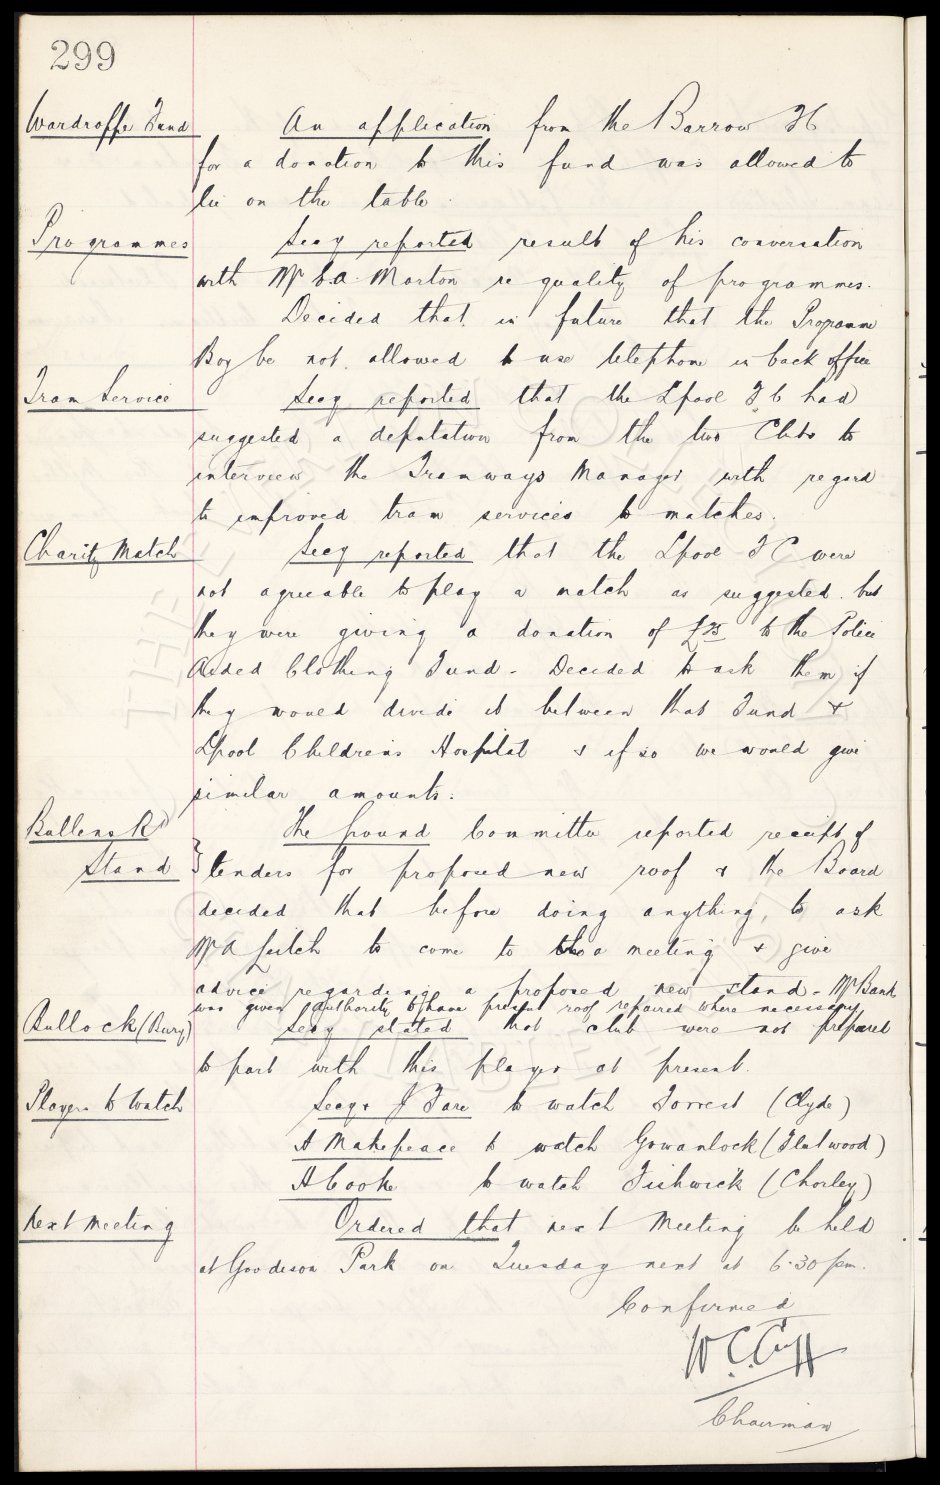 299
Wardroffe Fund An application from the Barrow FC
for a donation to this fund was allowed to
lie on the table.
Programmes Secy reported result of his conversation
with Mr E.A. Marton re quality of programmes.
Decided that in future that the Programme
Boy be not allowed to use telephone in back office
Tram Service Secy reported that the Lpool FC had
suggested a deputation from the two Clubs to
interview the Tramways Manager with regard
to improved tram services to matches.
Charity Match Secy reported that the Lpool FC were
not agreeable to play a match as suggested. but
they were giving a donation of to the Police
Aided Clothing Fund - Decided to ask them if
they would divide it between that Fund &
Lpool Childrens Hospital & if so we would give
similar amounts.
Bullens Rd The Ground Committee reported receipt of
Stand } tenders for proposed new roof & the Board
decided that before doing anything, to ask
Mr A Leitch to come to a meeting & give
advice regarding a proposed new stand - Mr Banks
was given authority to have present roof repaired where necessary
Bullock (Bury) Secy stated that club were not prepared
to part with this player at present.
Players to Watch Secy & J Fare to watch Forrest (Clyde)
H Makepeace to watch Gowanlock (Fleetwood)
A Cooke to watch Fishwick (Chorley)
Next Meeting Ordered that next Meeting be held
at Goodison Park on Tuesday next at 6.30 pm.
Confirmed
W.C. Cuff
Chairman